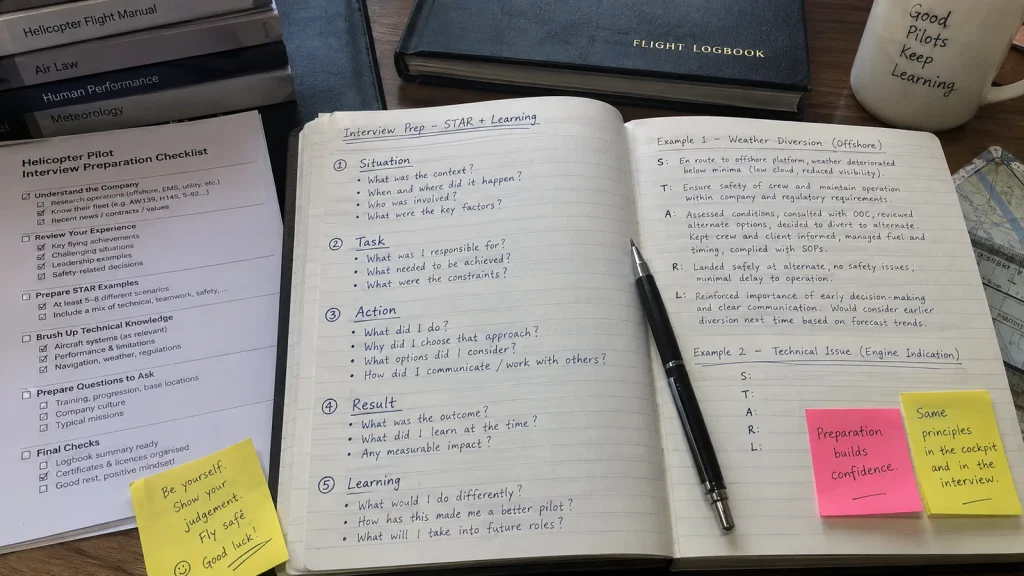 Helicopter Flight Manual
Air Law
Human Performance
Meteorology
FLIGHT LOGBOOK
Good
Pilots
Keep
Learning
Helicopter Pilot
Interview Preparation Checklist
Understand the Company
Research operations (offshore, EMS, utility, etc.)
Know their fleet (e.g. AW139, H145, S-92...)
Recent news / contracts / values
Review Your Experience
Key flying achievements
Challenging situations
Leadership examples
Safety-related decisions
Prepare STAR Examples
At least 5-8 different scenarios
Include a mix of technical, teamwork, safety, ...
Brush Up Technical Knowledge
Aircraft systems (as relevant)
Performance & limitations
Navigation, weather, regulations
Prepare Questions to Ask
Training, progression, base locations
Company culture
Typical missions
Final Checks
Logbook summary ready
Certificates & licences organised
Good rest, positive mindset!
Be yourself.
Show your
judgement.
Fly safe
Good luck!
Interview Prep - STAR + Learning
1 Situation
• What was the context?
• When and where did it happen?
• Who was involved?
• What were the key factors?
2 Task
• What was I responsible for?
• What needed to be achieved?
• What were the constraints?
3 Action
• What did I do?
• Why did I choose that approach?
• What options did I consider?
• How did I communicate / work with others?
4 Result
• What was the outcome?
• What did I learn at the time?
• Any measurable impact?
5 Learning
• What would I do differently?
• How has this made me a better pilot?
• What will I take into future roles?
Example 1 - Weather Diversion (Offshore)
S: En route to offshore platform, weather deteriorated
below minima (low cloud, reduced visibility).
T: Ensure safety of crew and maintain operation
within company and regulatory requirements.
A: Assessed conditions, consulted with OOC, reviewed
alternate options, decided to divert to alternate.
Kept crew and client informed, managed fuel and
timing, complied with SOPs.
R: Landed safely at alternate, no safety issues,
minimal delay to operation.
L: Reinforced importance of early decision-making
and clear communication. Would consider earlier
diversion next time based on forecast trends.
Example 2 - Technical Issue (Engine Indication)
S:
T:
A:
R:
L:
Preparation
builds
confidence.
Same
principles
in the cockpit
and in the
interview.